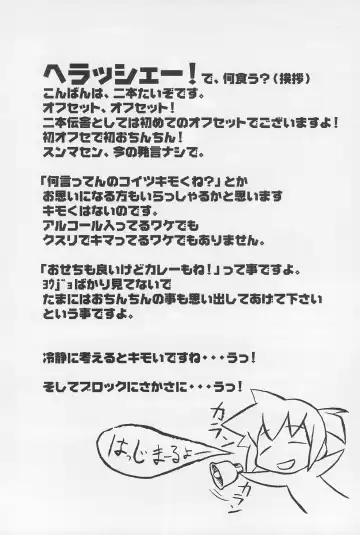 ヘラッシェー！で、何食う？（挨拶）
こんばんは、二本たいぞです。
オフセット、オフセット！
二本伝書としては初めてのオフセットでございますよ！
初オフセで初おちんちん！
スンマセン、今の発言ナシで。
「何言ってんのコイツキモくね？」とか
お思いになる方もいらっしゃるかと思います
キモくはないのです。
アルコール入ってるワケでも
クスリでキマってるワケでもありません。
「おせちも良いけどカレーもね！」って事ですよ。
ﾖｳｼﾞｮばかり見てないで
たまにはおちんちんの事も思い出してあげて下さい
という事ですよ。
冷静に考えるとキモいですね・・・うっ！
そしてブロックにさかさに・・・うっ！
カラン
はっじまーるよー
カラン